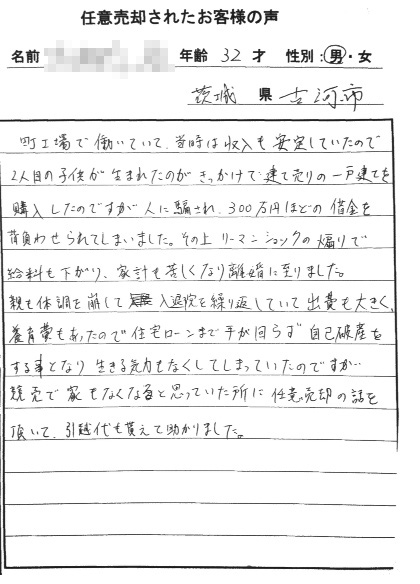 任意売却されたお客様の声
名前 年齢 32 才 性別:男・女
茨城 県 古河市
町工場で働いていて、当時は収入も安定していたので
2人目の子供が生まれたのがきっかけで建て売りの一戸建てを
購入したのですが人に騙され、300万円ほどの借金を
背負わせられてしまいました。その上リーマンショックの煽りで
給料も下がり、家計も苦しくなり離婚に至りました。
親も体調を崩して 入退院を繰り返していて出費も大きく、
養育費もあったので住宅ローンまで手が回らず自己破産を
する事となり生きる気力もなくしてしまっていたのですが…
競売で家もなくなると思っていた所に任意売却の話を
頂いて、引越代も貰えて助かりました。